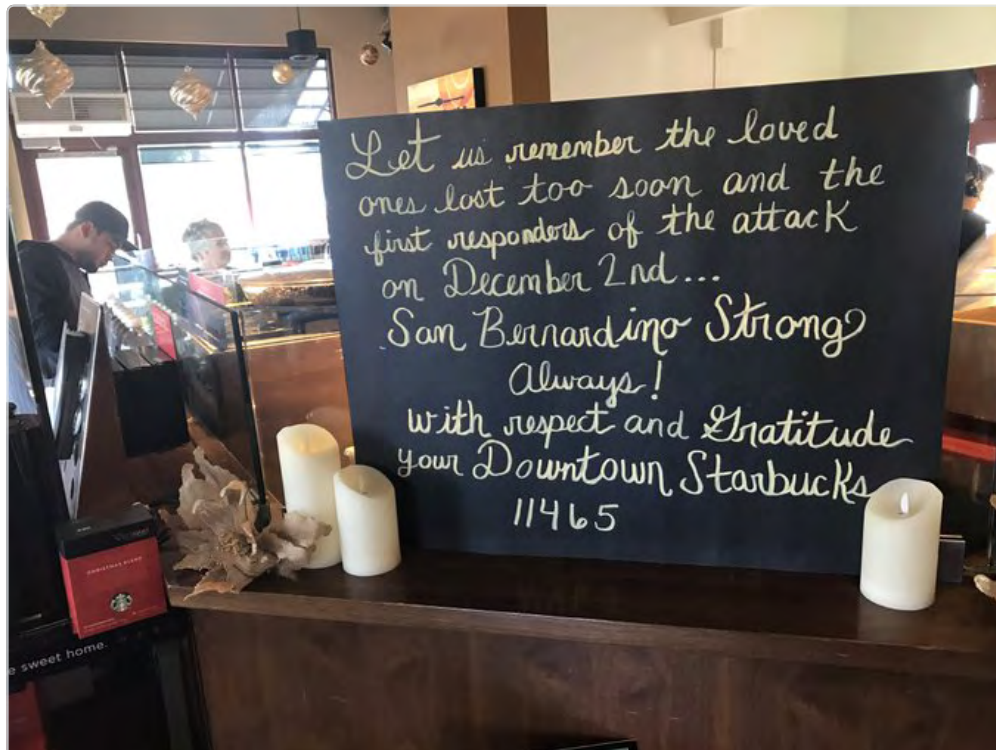 Let us remember the loved
ones lost too soon and the
first responders of the attack
on December 2nd...
San Bernardino Strong
Always!
with respect and Gratitude
your Downtown Starbucks
11465
CHRISTMAS BLEND
e sweet home.